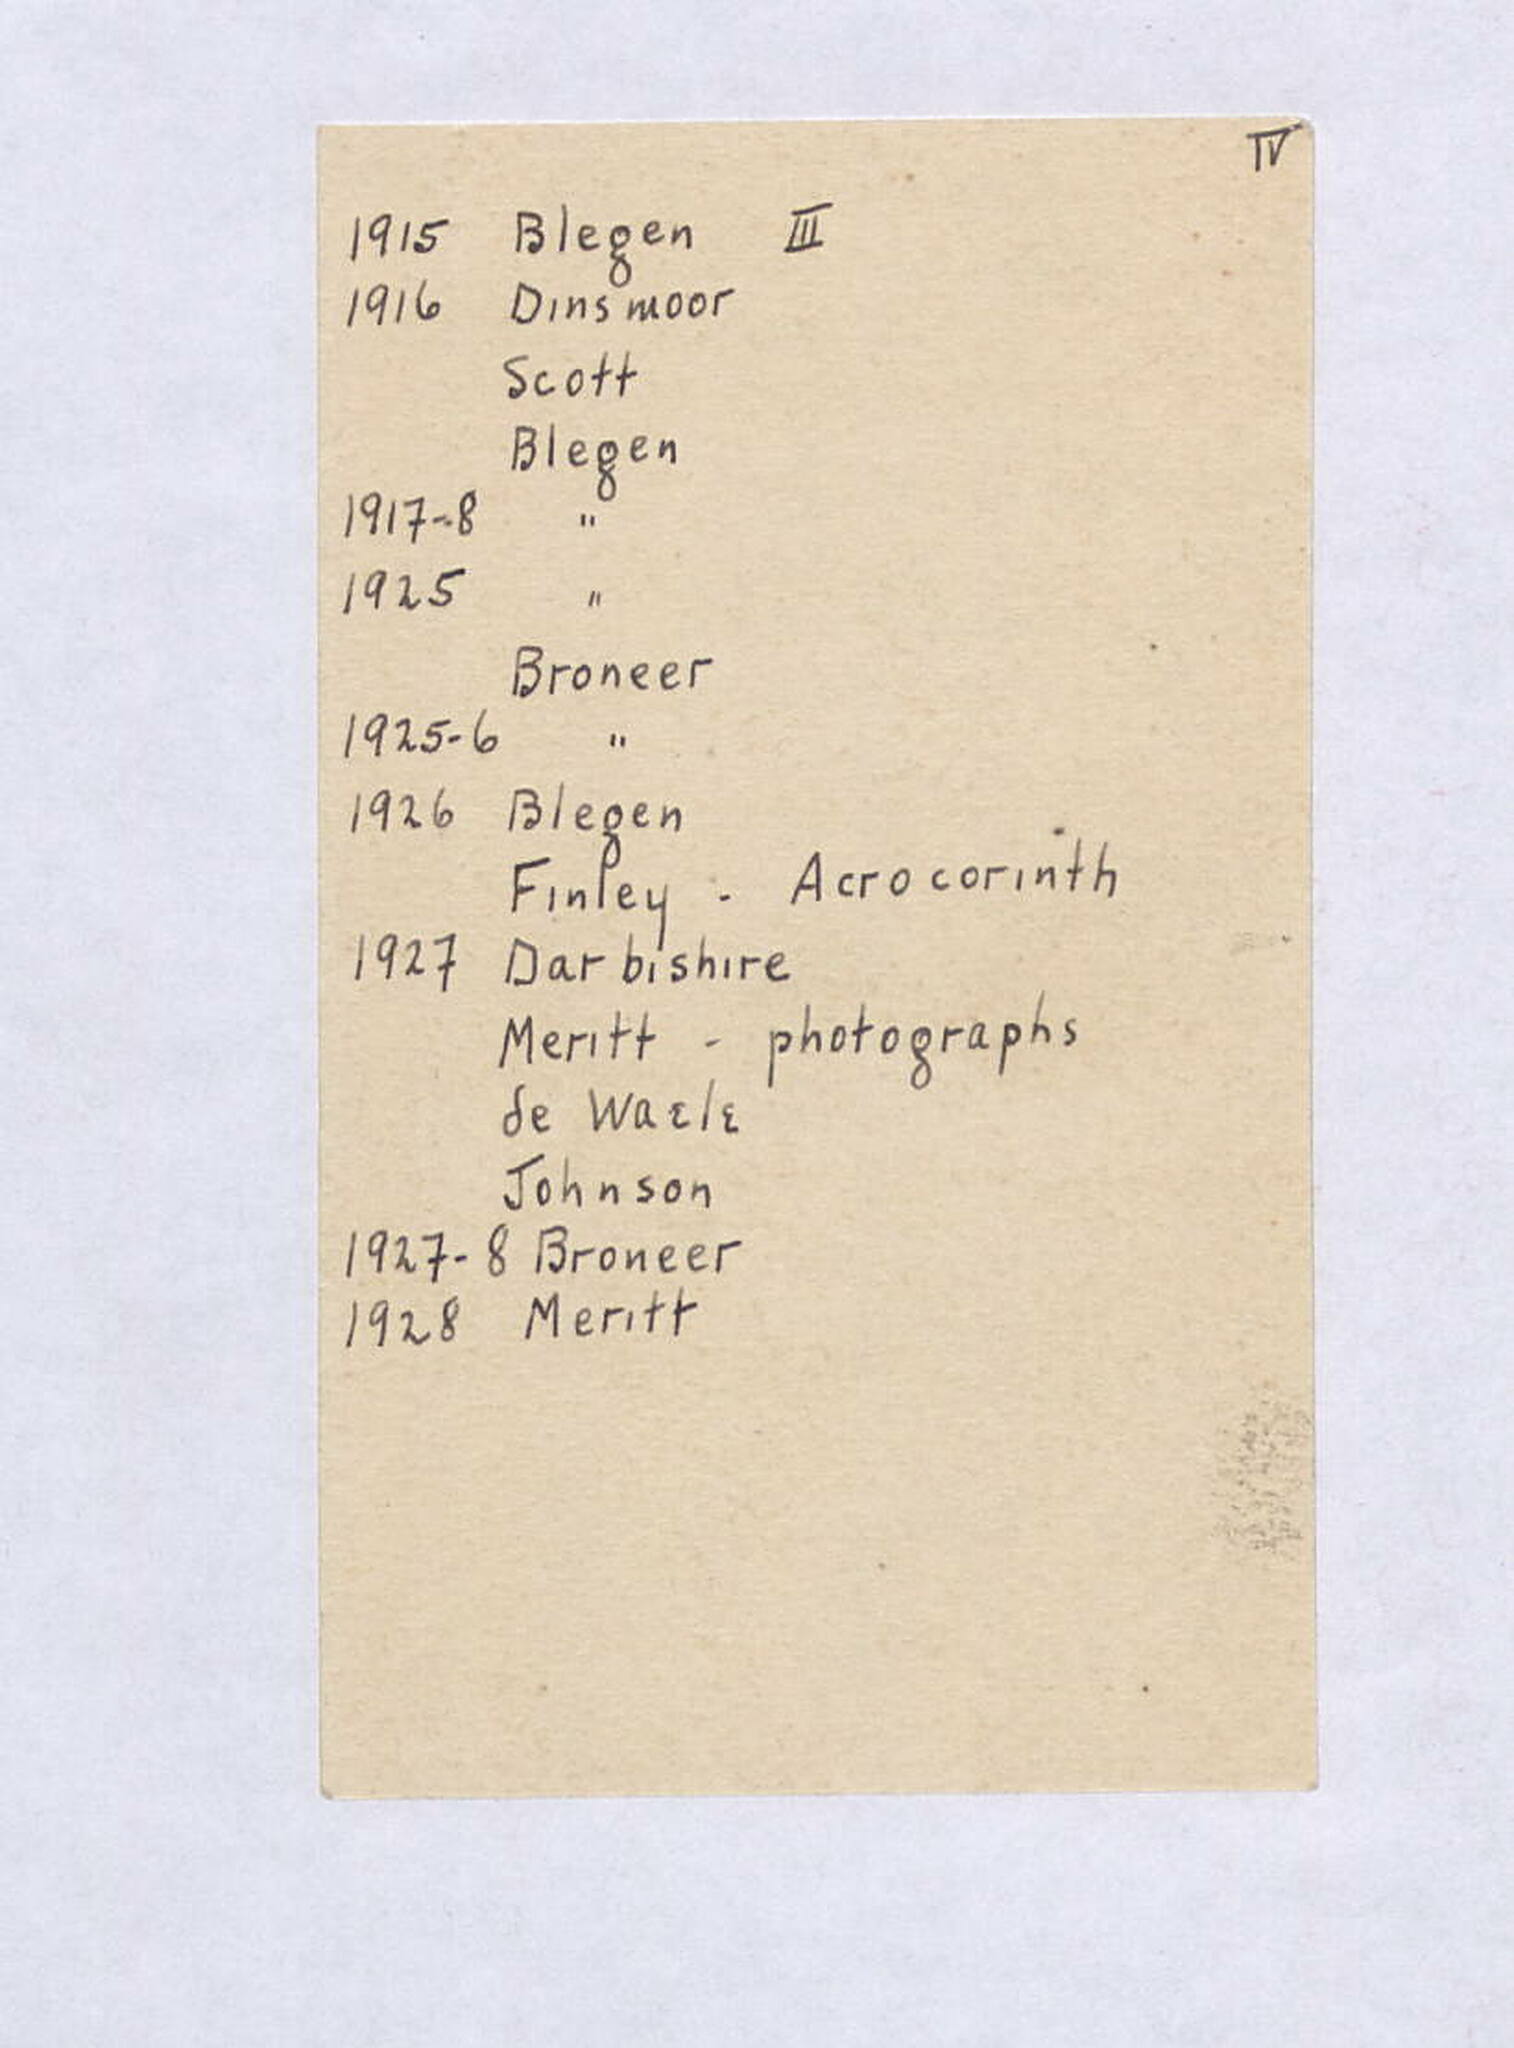 IV
1915 Blegen III
1916 Dinsmoor
Scott
Blegen
1917-8 "
1925 "
Broneer
1925-6 "
1926 Blegen
Finley - Acrocorinth
1927 Darbishire
Meritt - photographs
de Waele
Johnson
1927-8 Broneer
1928 Meritt